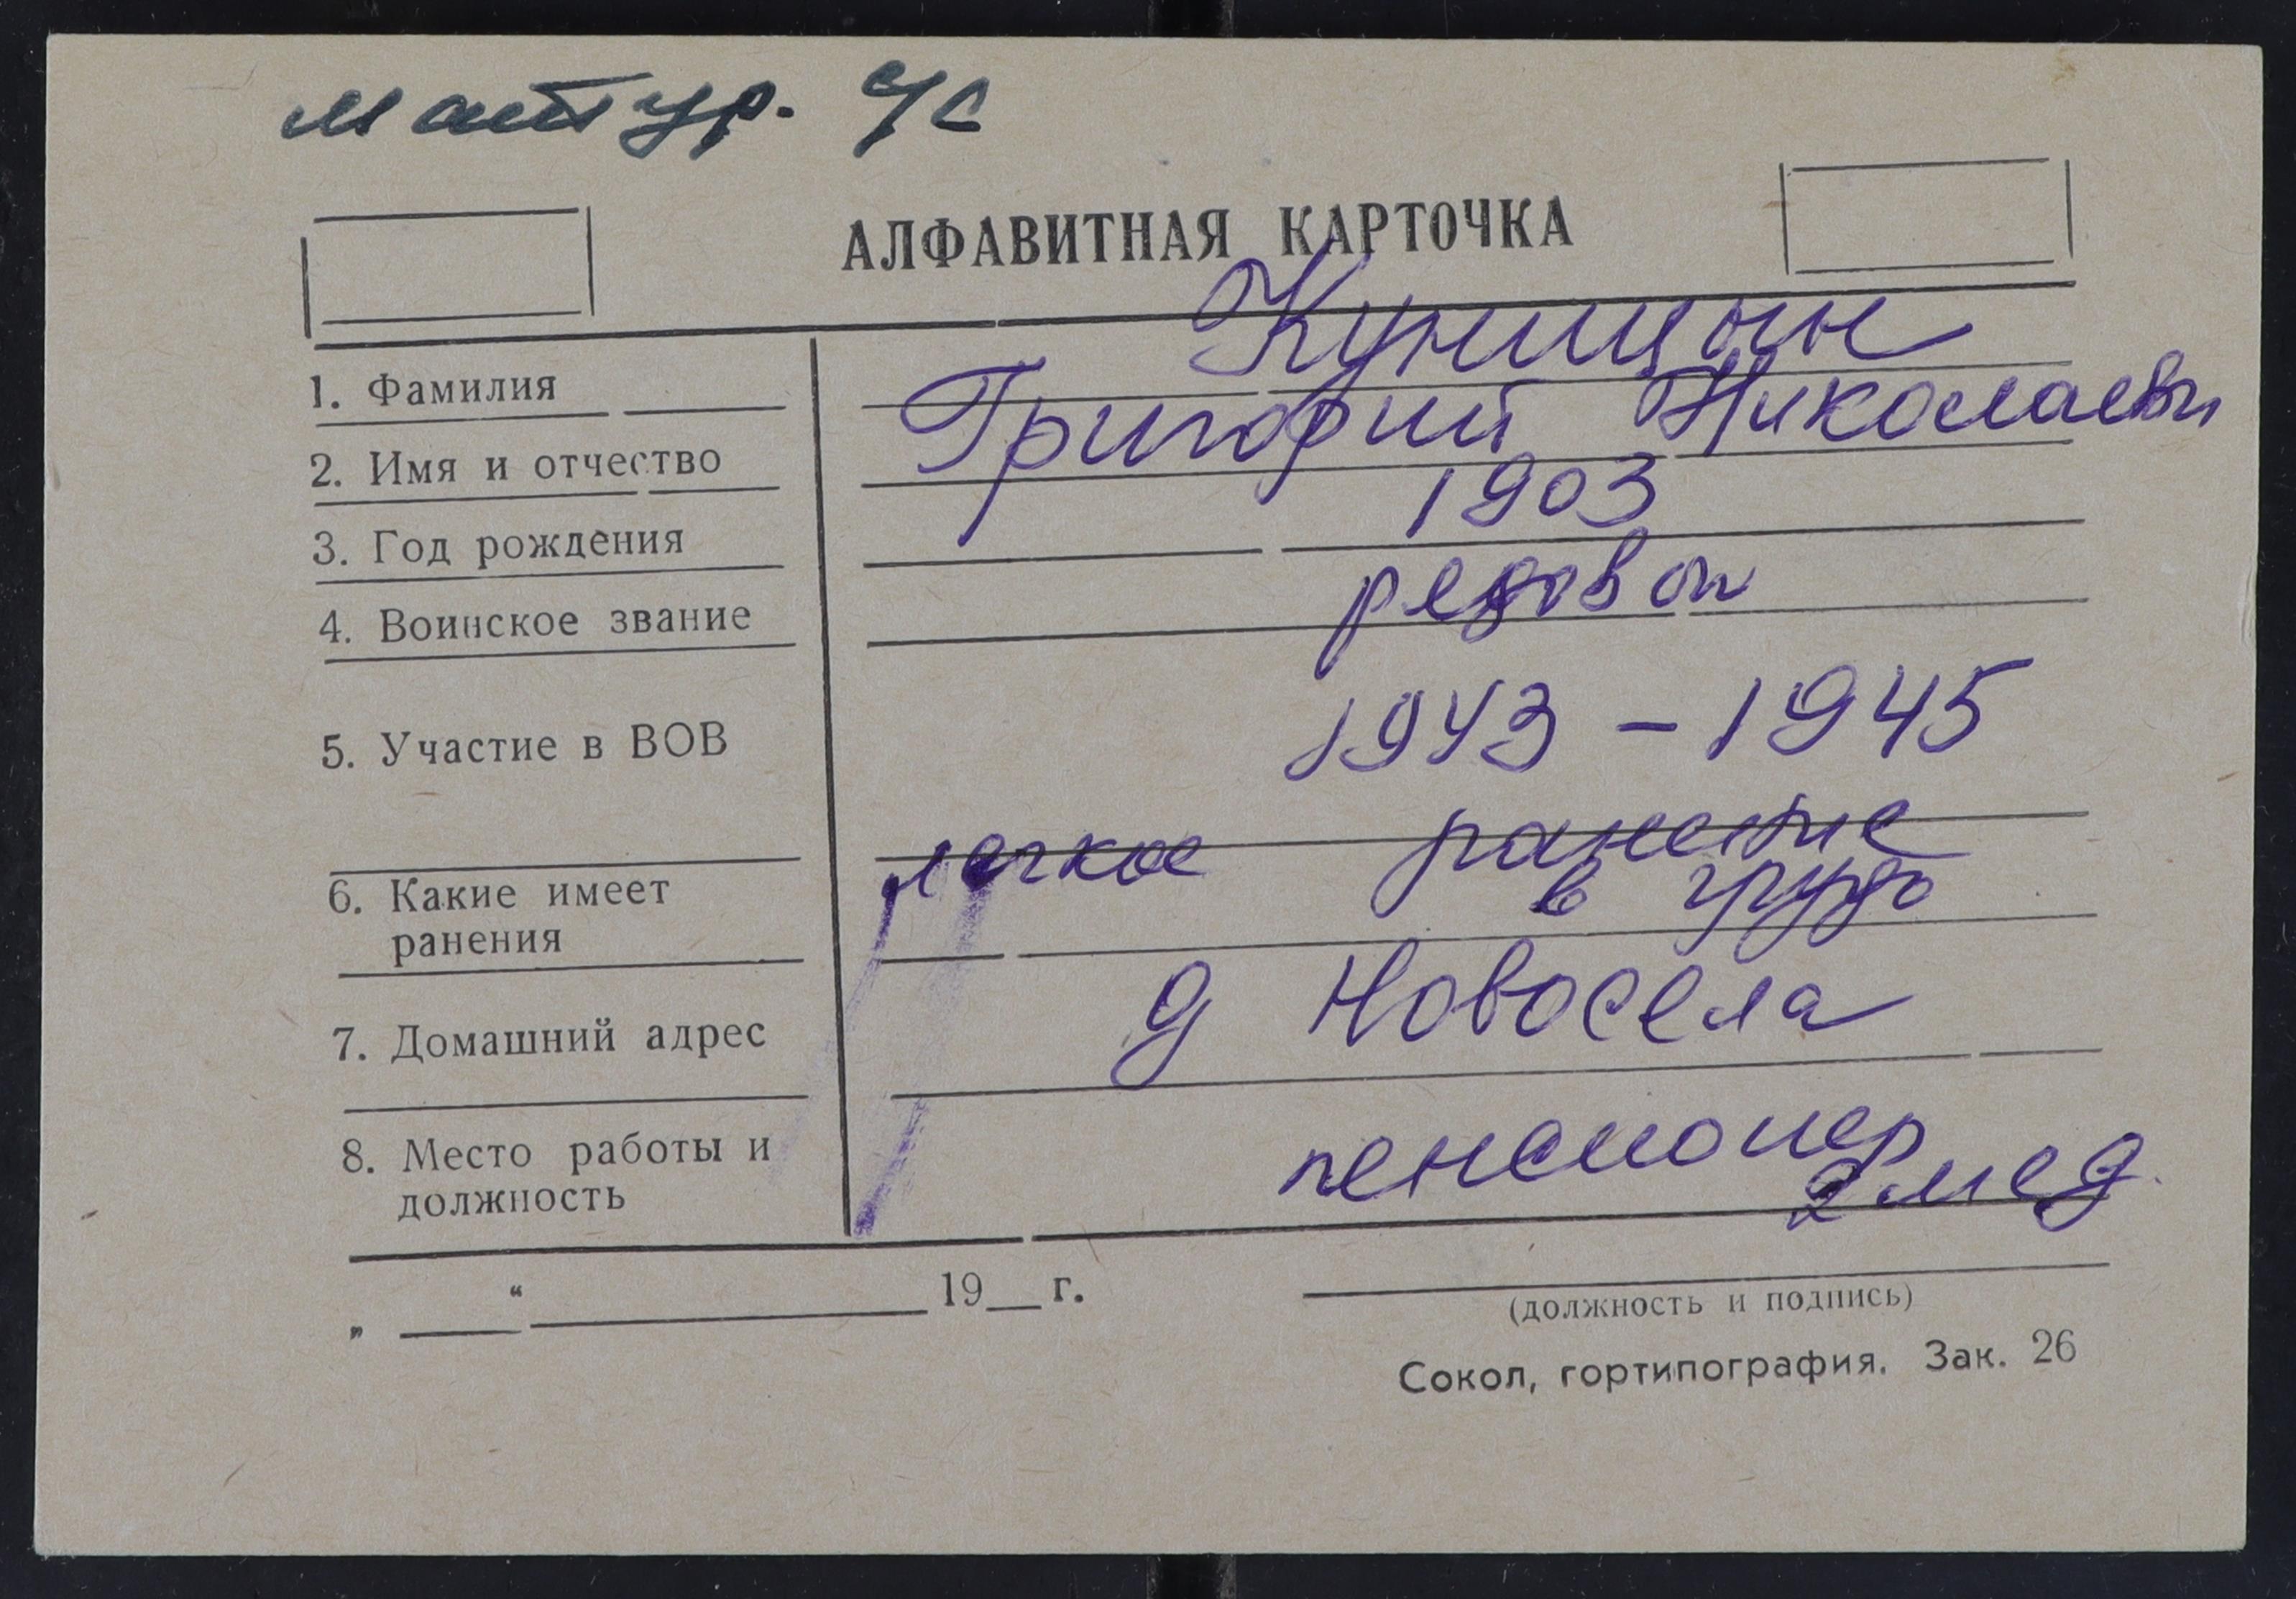 матур. ч/с
АЛФАВИТНАЯ КАРТОЧКА
1. Фамилия Куницын
2. Имя и отчество Григорий Николаевич
3. Год рождения 1903
4. Воинское звание рядовой
5. Участие в ВОВ 1943 - 1945
6. Какие имеет легкое ранение
ранения в грудь
7. Домашний адрес д Новосела
8. Место работы и пенсионер
должность 2 мед.
„ “ 19 г.
(должность и подпись)
Сокол, гортипография. Зак. 26